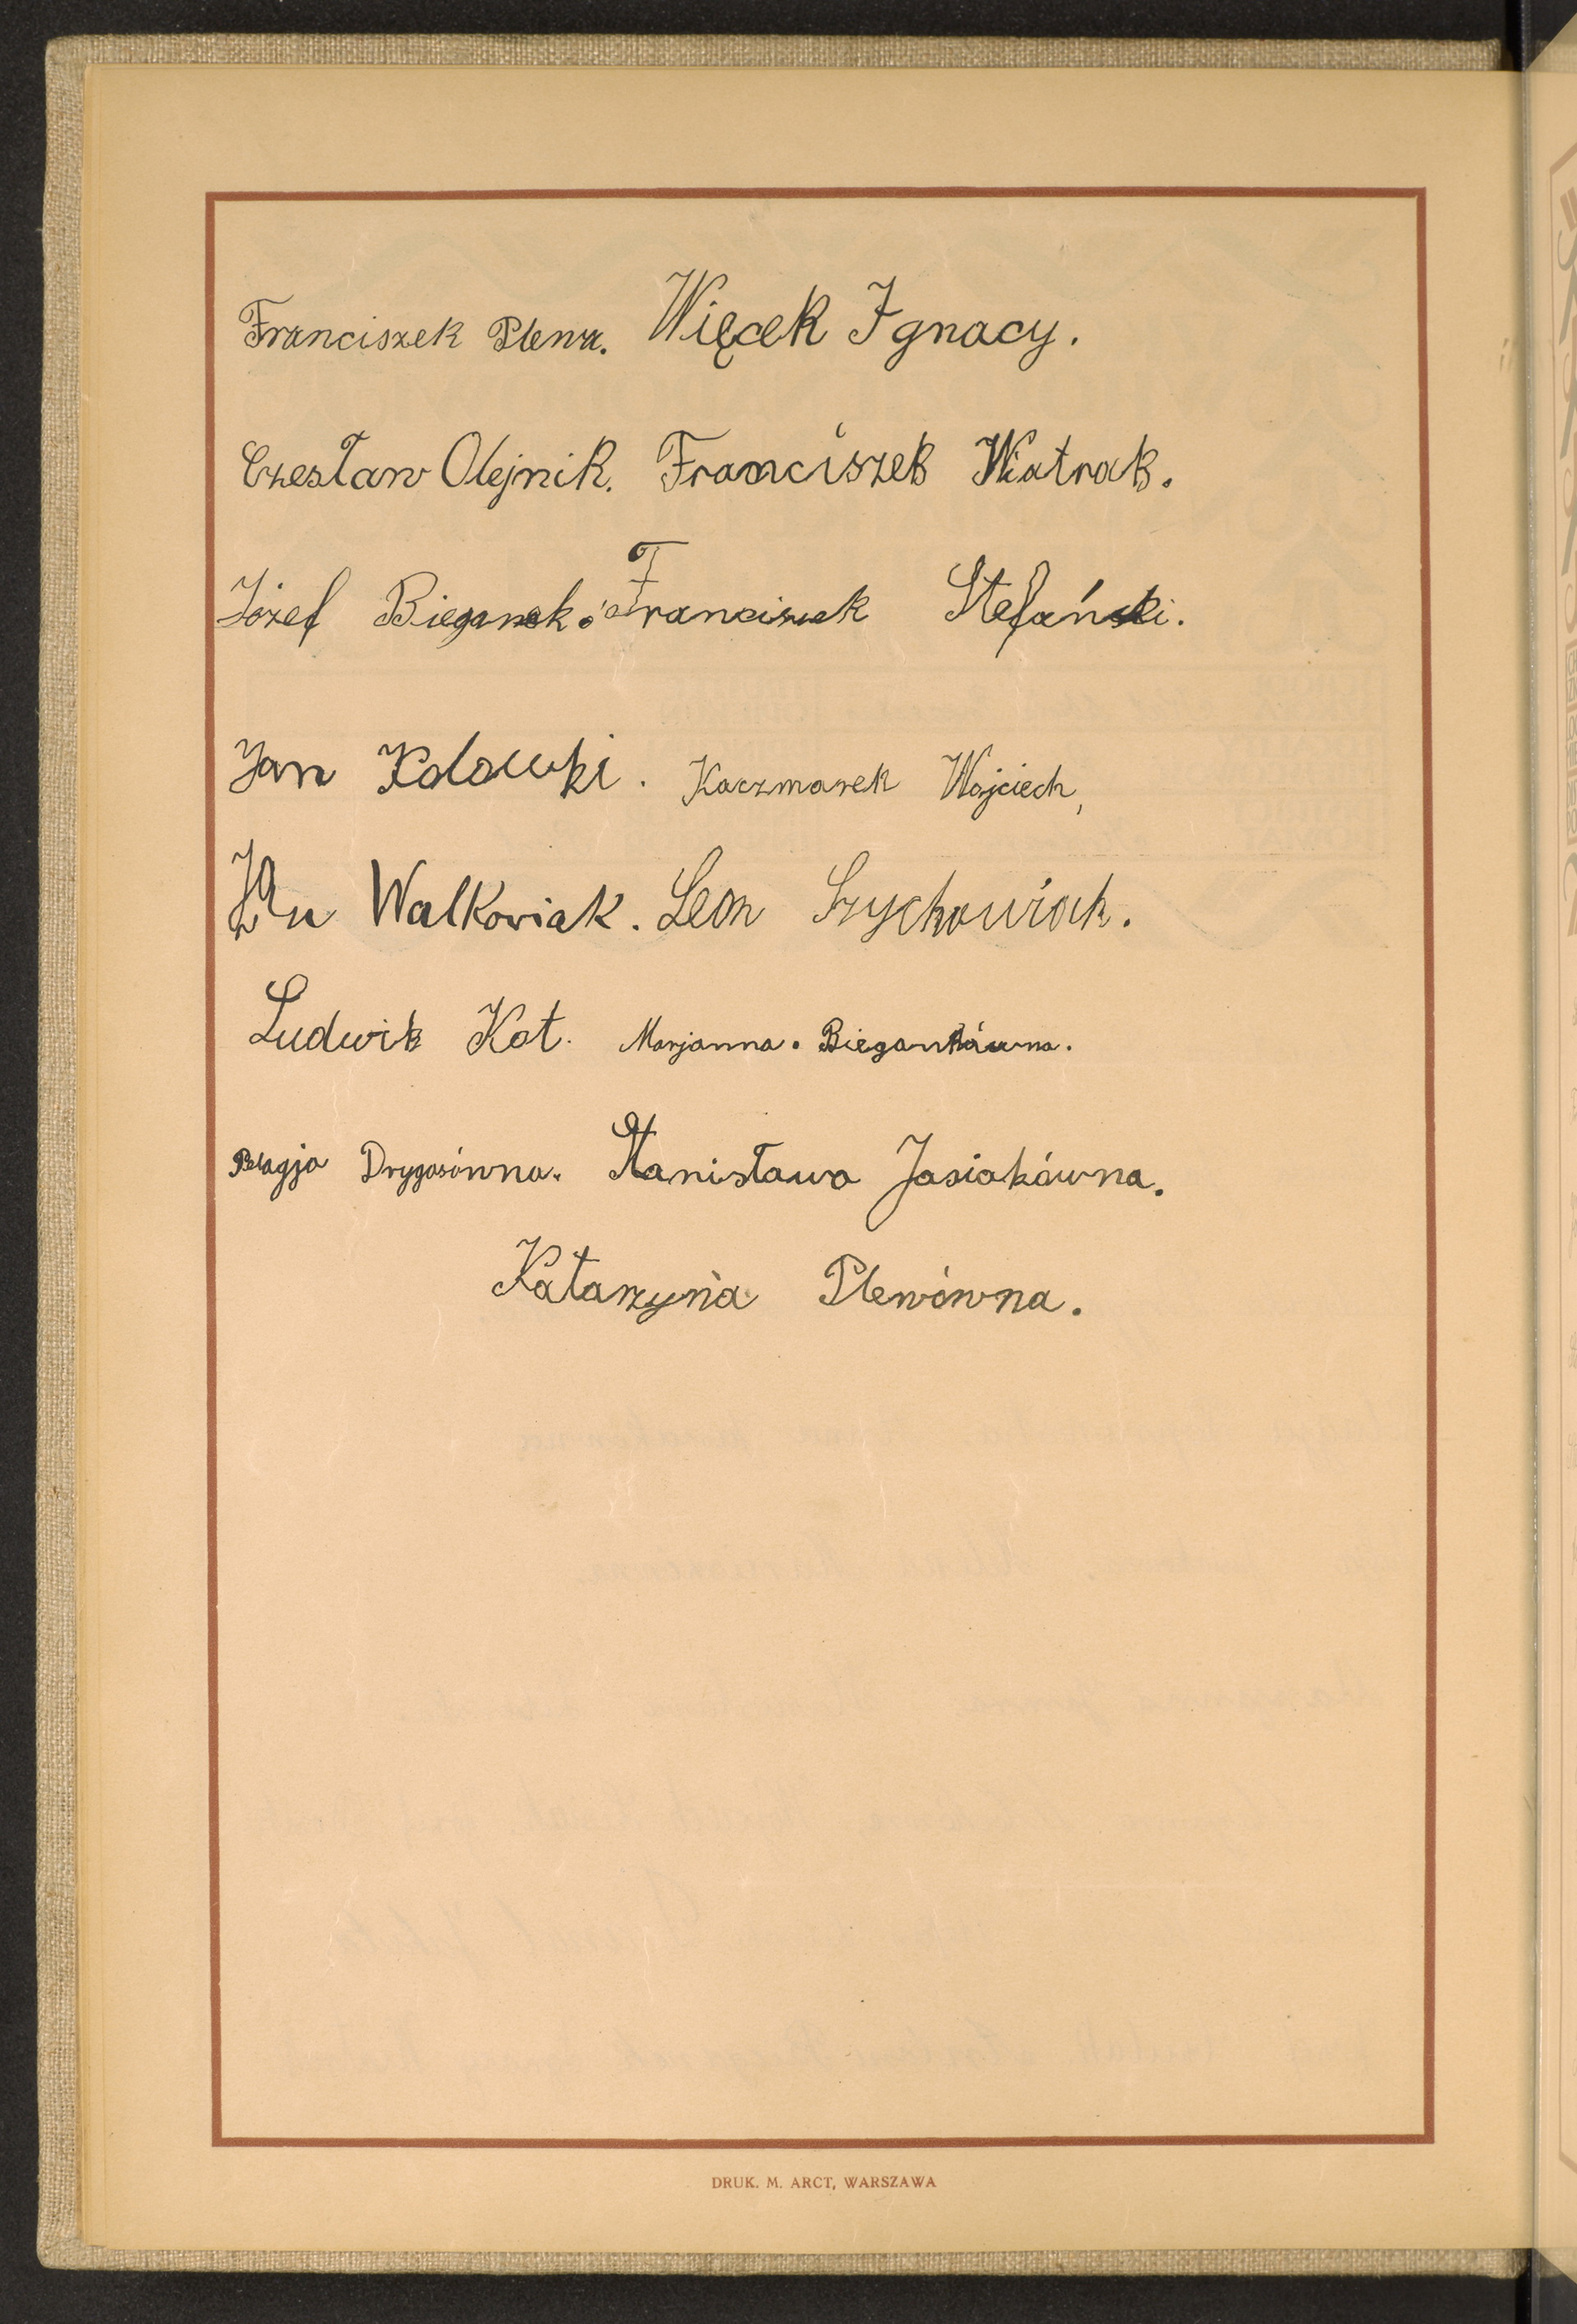 Franciszek Plewa. Więcek Ignacy.
Czesław Olejnik. Franciszek Wiatrak.
Józef Bieganek. Franciszek Stefański.
Jan Kolowki. Kaczmarek Wojciech,
Jan Walkowiak. Leon Szychowiak.
Ludwik Kot. Marjanna. Biegankówna.
Pelagja Drygasówna. Stanisława Jasiakówna.
Katarzyna Plewówna.
DRUK. M. ARCT, WARSZAWA